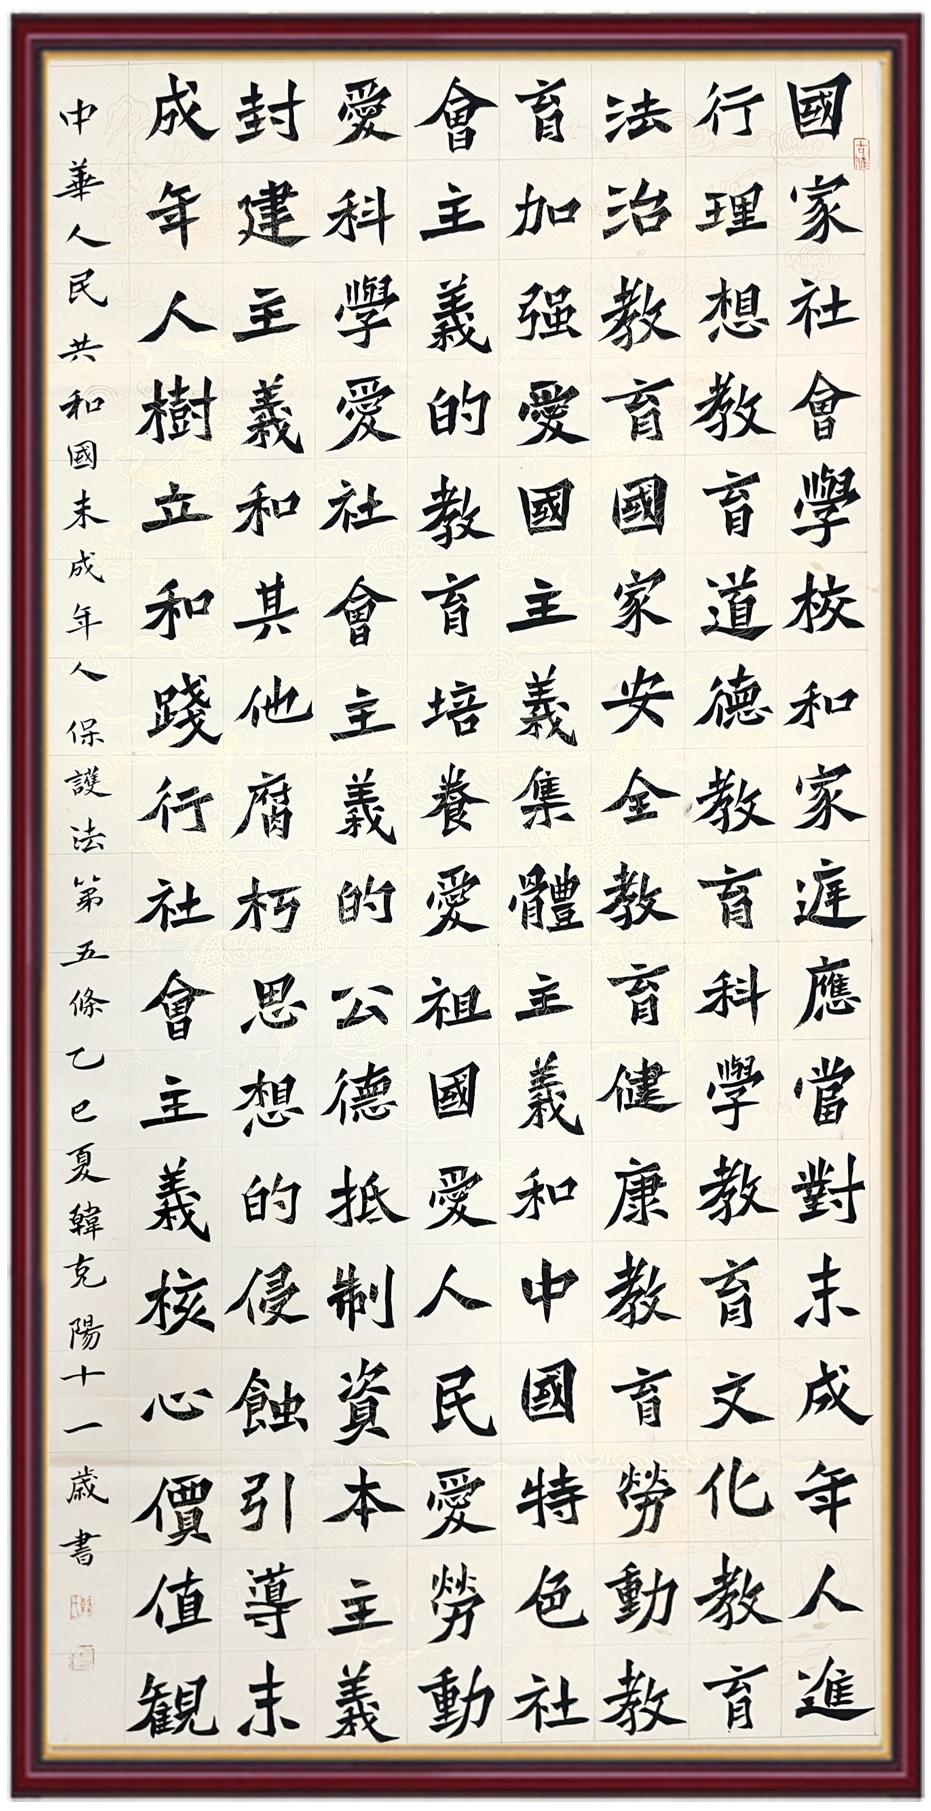 國家社會學校和家遅應當對未成年人進
行理想教育道德教育科學教育文化教育
法治教育國家安全教育健康教育勞動教
育加强愛國主義集體主義和中國特色社
會主義的教育培養愛祖國愛人民愛勞動
愛科學愛社會主義的公德抵制資本主義
封建主義和其他腐朽思想的侵蝕引導未
成年人樹立和踐行社會主義核心價值觀
中華人民共和國未成年人保護法第五條乙巳夏韓克陽十一歲書